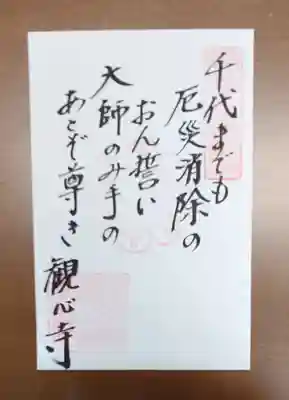 千代までも
厄災消除の
おん誓い
大師のみ手の
あとぞ尊き
観心寺